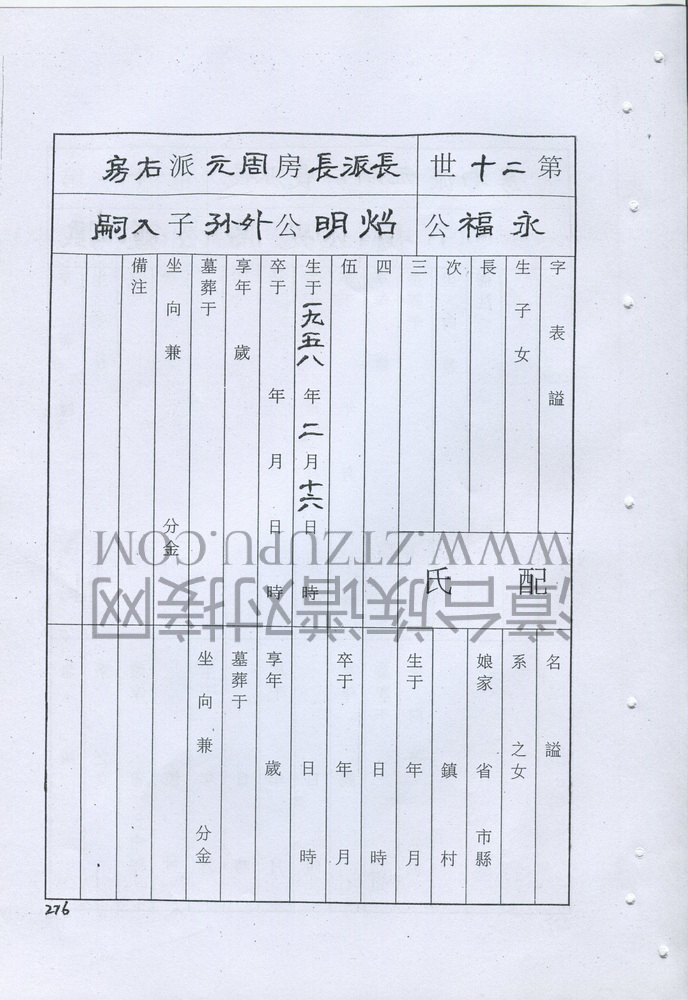 第二十世
長派長房周元派右房
永福公
焰明公外孙子入嗣
字表謚
生子女
長
次
三
四
伍
生于一九五八年二月十六日時
卒于年月日時
享年歲
墓葬于
坐向兼分金
備注
配氏
名謚
系之女
娘家省市縣
鎮村
生于年月
日時
卒于年月
日時
享年歲
墓葬于
坐向兼分金
276
WWW.ZTZUPU.COM
漳台族谱对接网